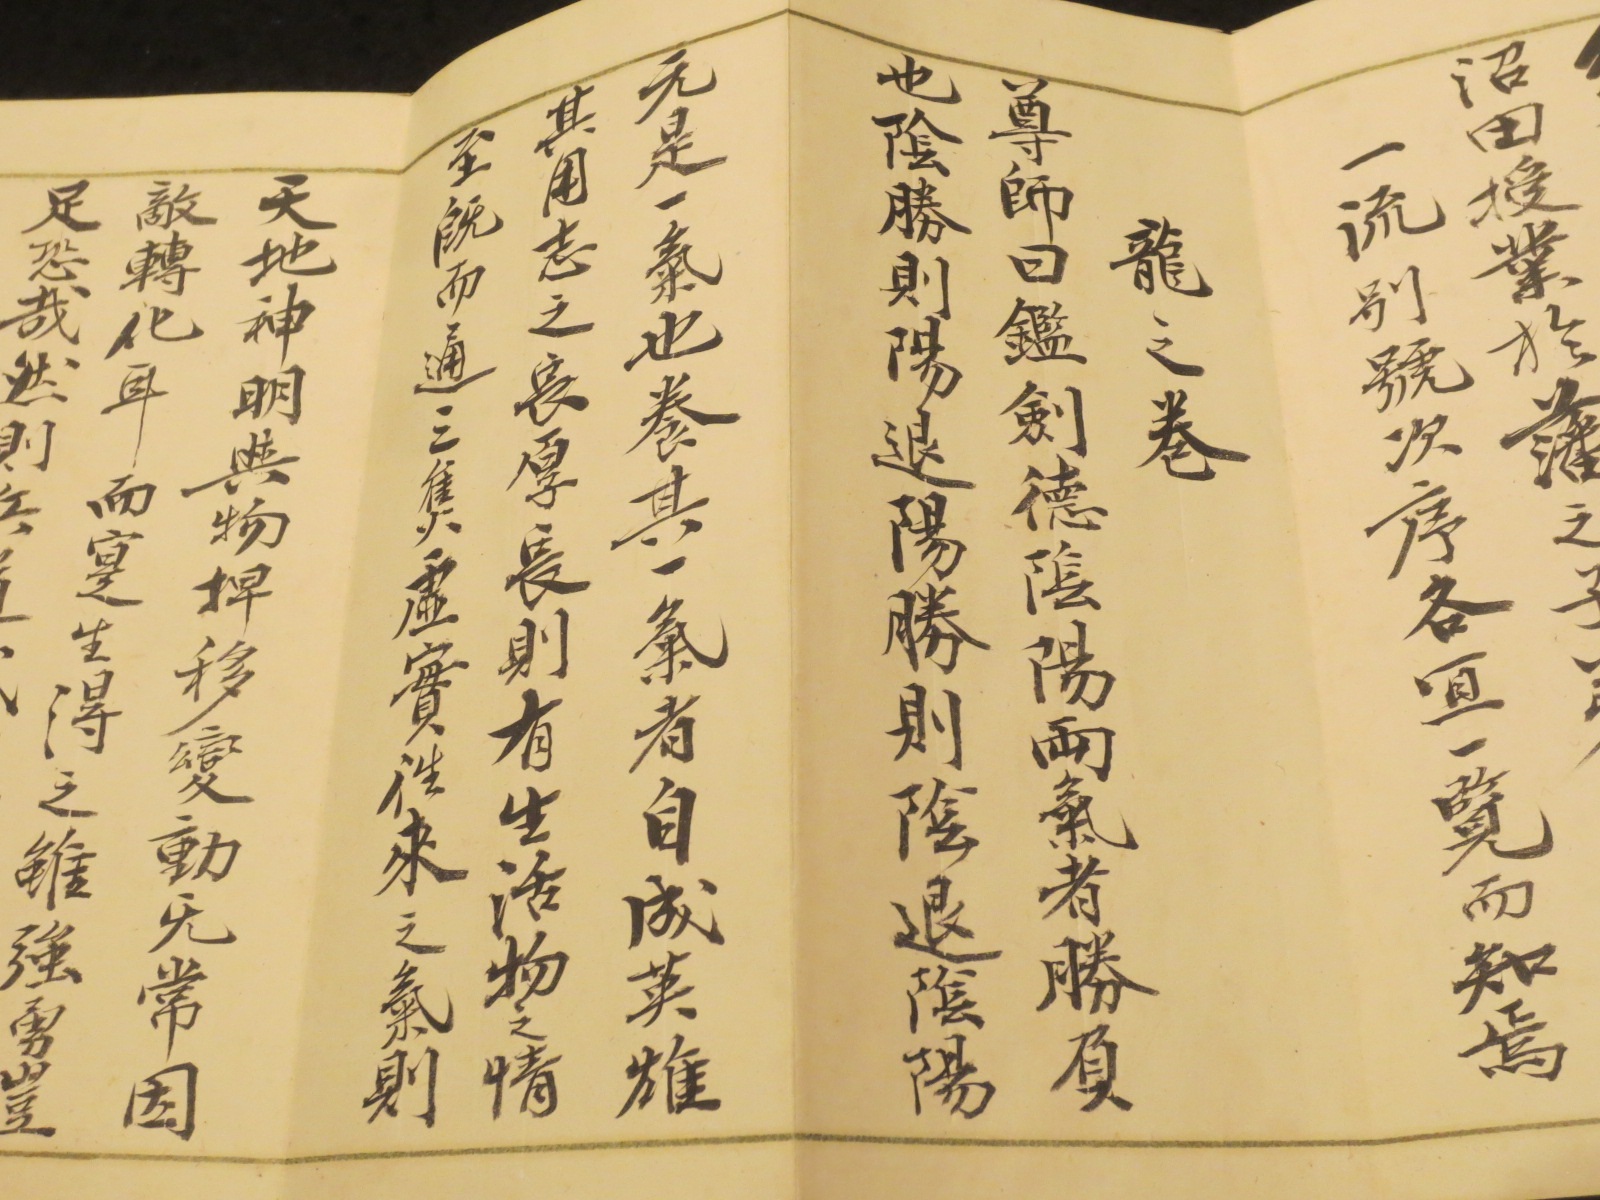 沼田授業於藩之子
一流別號次序各亘一覽而知焉
龍之卷
尊師曰鑑劍德陰陽兩氣者勝負
也陰勝則陽退陽勝則陰退陰陽
无是一氣也養其一氣者自成英雄
其用志之長厚長則有生活物之情
至既而通三隻虛實往來之氣則
天地神明與物押移變動无常因
敵轉化耳而寔生得之雖強勇豈
足恐哉然則兵道